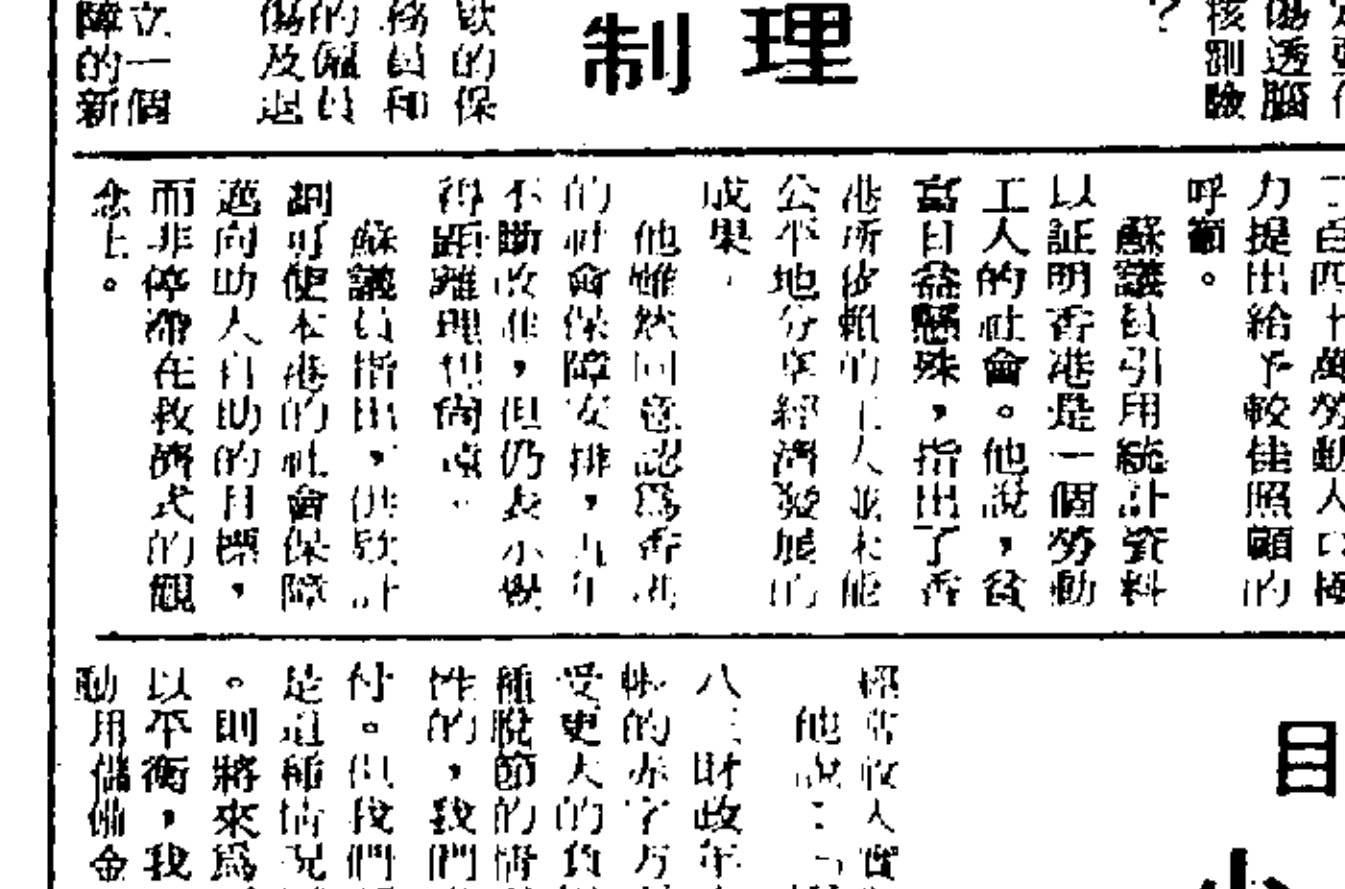 理
制
核測驗
傷透腦
？
歉的保
務員和
的僱員
傷及退
立一個
障的新
二百四十萬勞動人口極
力提出給予較佳照顧的
呼籲。
蘇議員引用統計資料
以証明香港是一個勞動
工人的社會。他說，貧
富日益懸殊，指出了香
港所依賴的工人並未能
公平地分享經濟發展的
成果。
他雖然同意認爲香港
的社會保障安排，五年
不斷改進，但仍表示與
得距離理想尚遠。
蘇議員指出，供款計
劃可使本港的社會保障
邁向助人自助的目標，
而非停滯在救濟式的觀
念上。
目
經常收入實
他說：
八三財政年
帳的赤字方
受更大的負
種脫節的情
性的，我們
付。但我們
是這種情況
。則將來爲
以平衡，我
動用儲備金